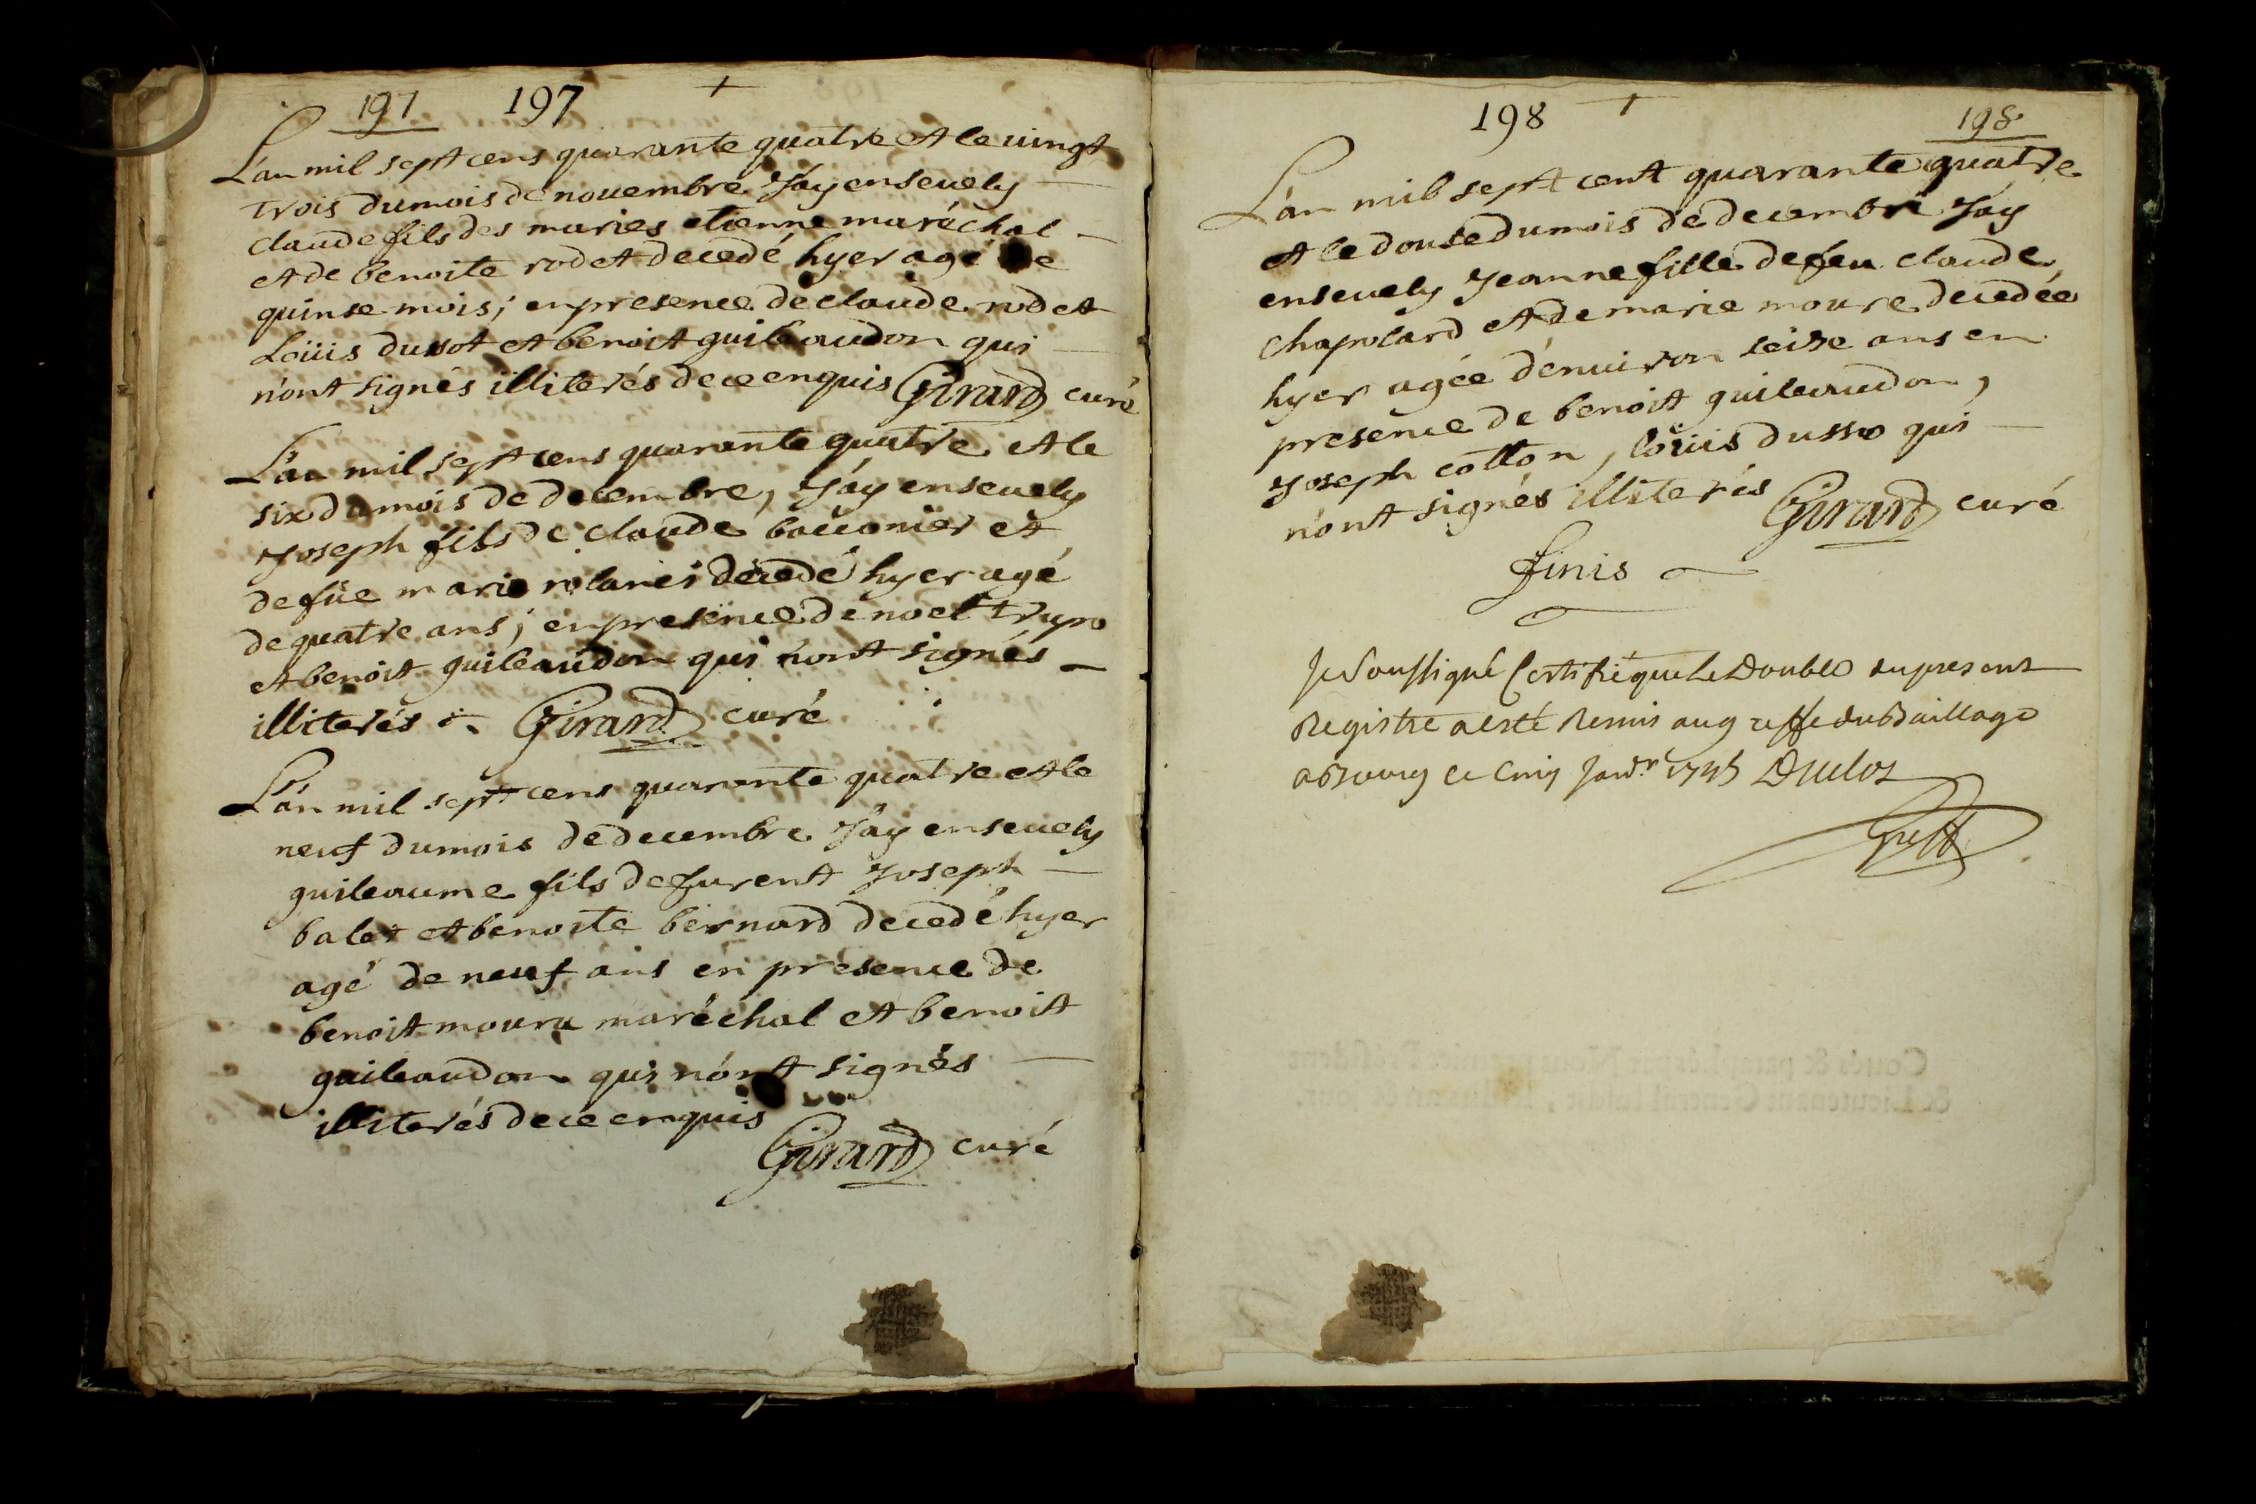 197 197 +
L'an mil sept cens quarante quatre et le vingt
trois du mois de novembre J'ay ensevely
claude fils des maries etienne maréchal
et de benoite rodet decedé hyer agé de
quinse mois; en presence de claude rodet
Loüis dussot et benoit guileaudon qui
n'ont signés illiterés de ce enquis Girard curé
L'an mil sept cens quarante quatre et le
six du mois de decembre, J'ay ensevely
Joseph fils de claude bouvonier et
de füe marie decedé hyer agé
de quatre ans; en presence de noel trupo
et benoit guileaudon qui n'ont signés
illiterés Girard curé
L'an mil sept cens quarante quatre et le
neuf du mois de decembre J'ay ensevely
guileaume fils de furent Joseph
balet et benoite bernard decedé hyer
agé de neuf ans en présence de
benoit moura maréchal et benoit
guileaudon qui n'ont signés
illiterés de ce enquis
Girard curé
198 + 198
L'an mil sept cent quarante quatre
et le douse du mois de decembre J'ay
ensevely Jeanne fille de feu claude
chapolard et de marie moure decedée
hyer agée d'environ seize ans en
presence de benoit guileaudon,
Joseph cotton, loüis dusso qui
n'ont signés illiterés Girard curé
finis
Je Soussigné Certifie que Le Double du present
Registre a esté Remis au greffe du Bailliage
a Bourg ce cinq Janv.r 1745 Duclos
Greff